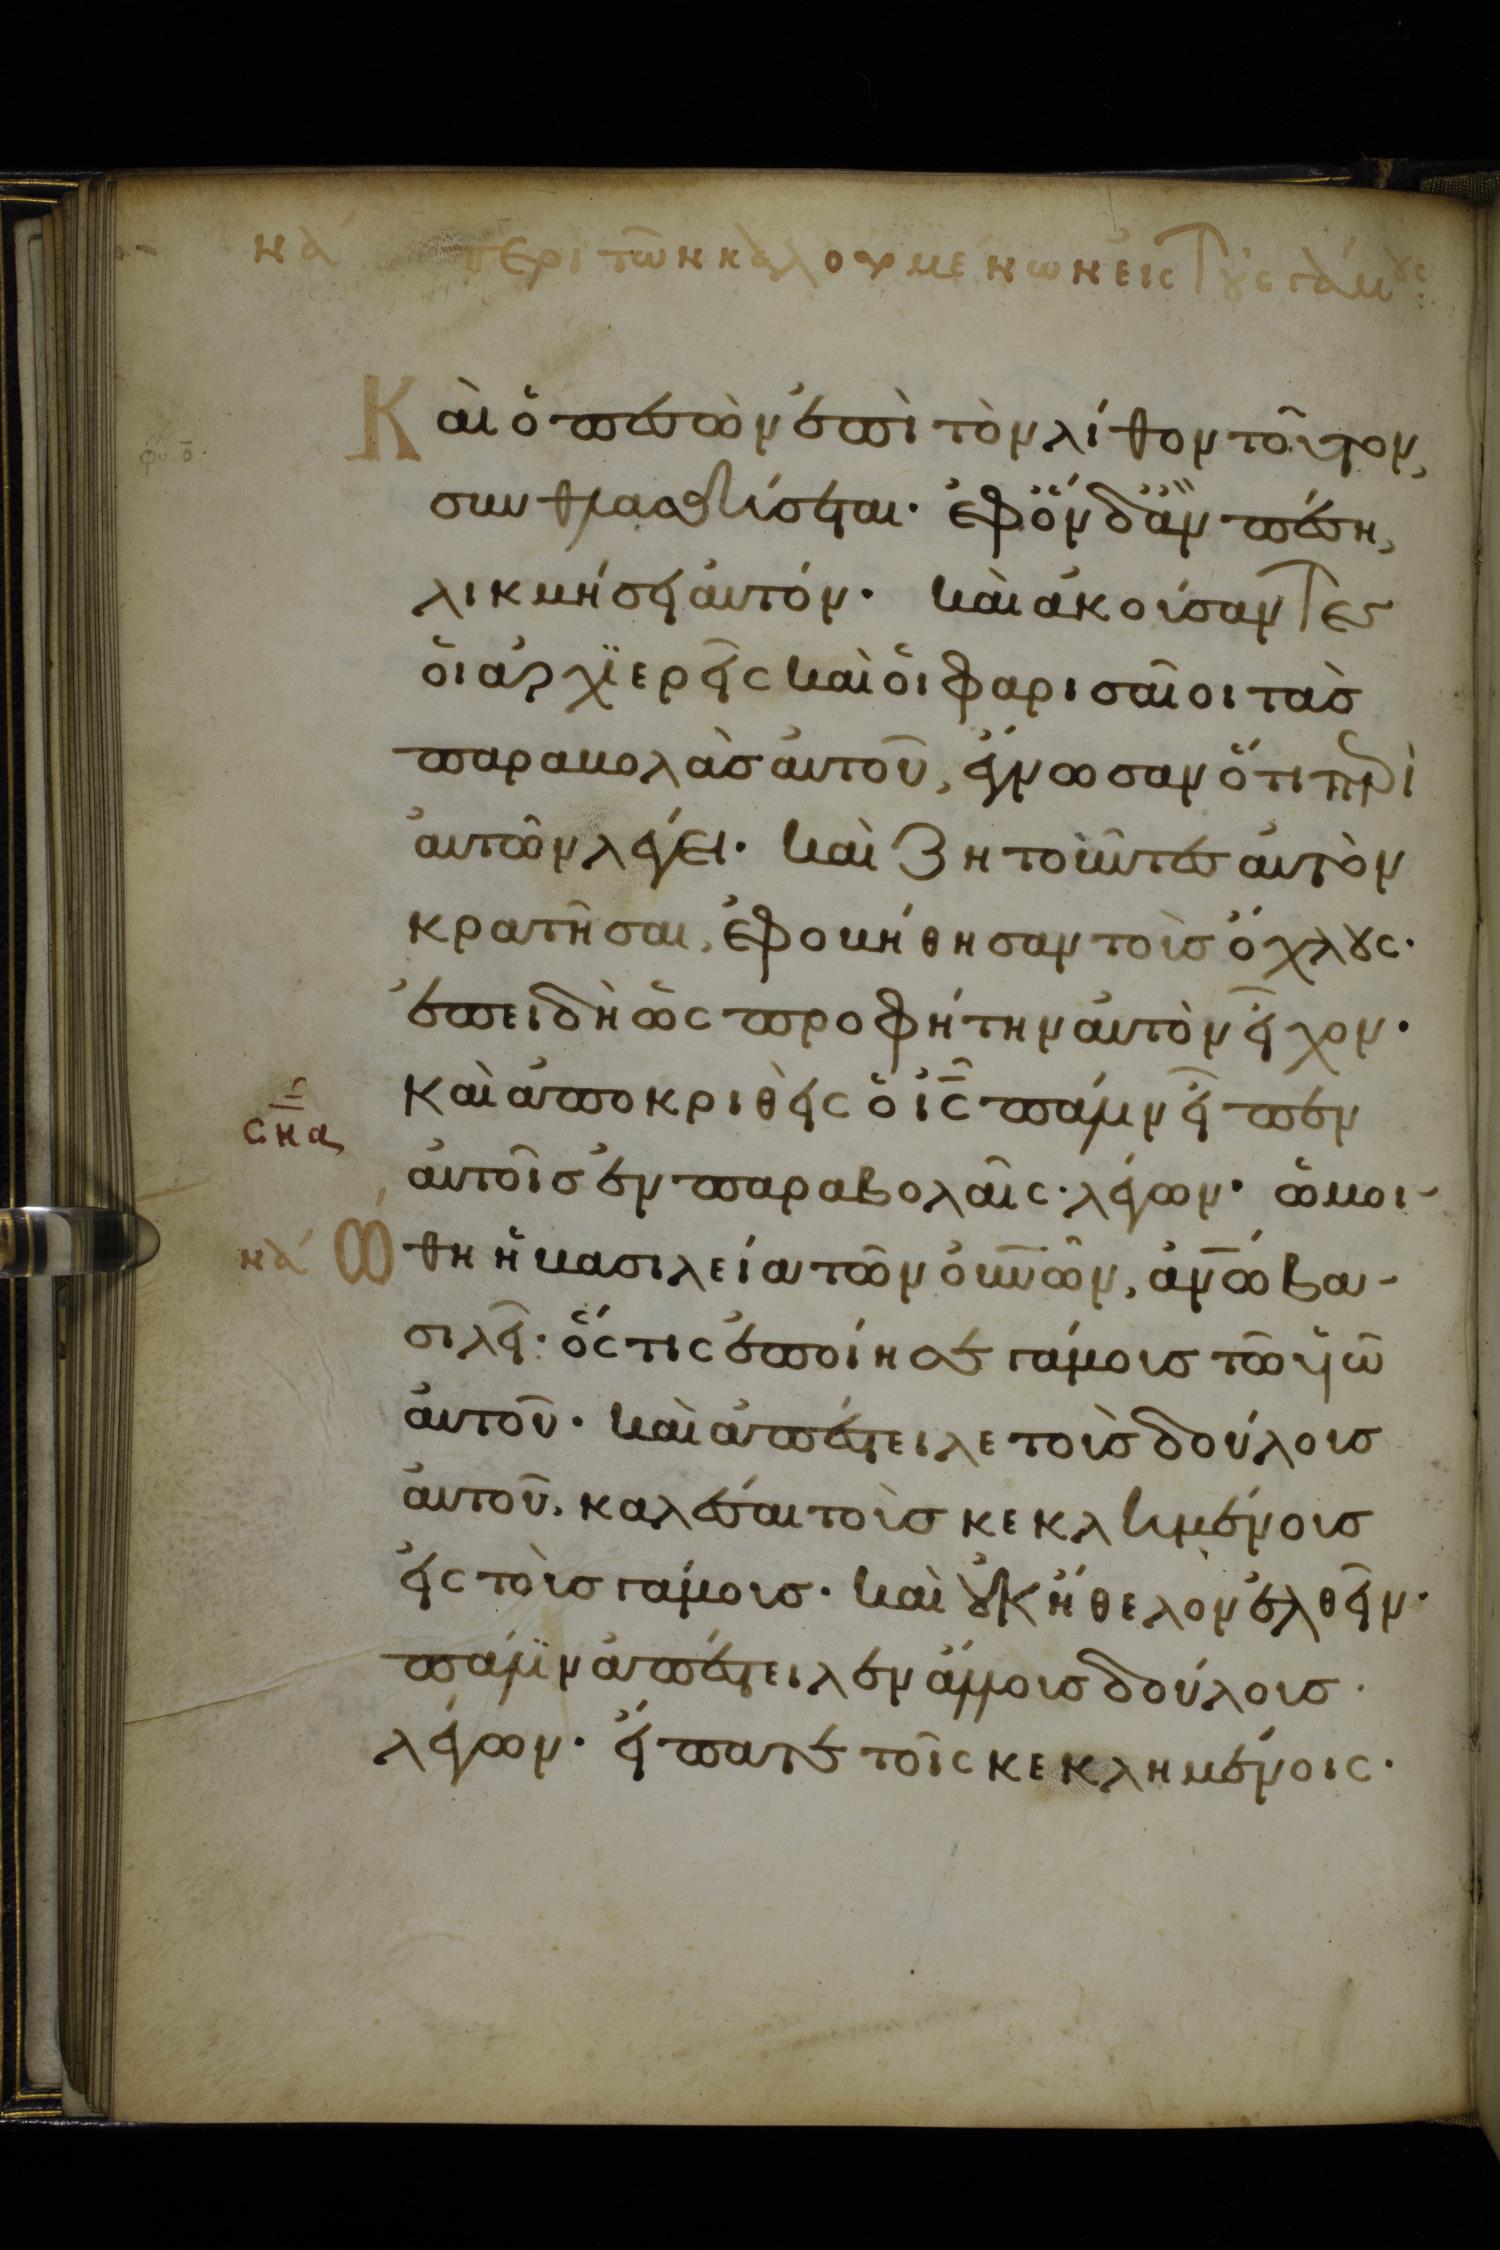 να περὶ τῶν καλουμένων εἰς τοὺς γάμους:
Καὶ ὁ πεσὼν ἐπὶ τὸν λίθον τοῦτον,
συνθλασθήσεται· ἐφ ὃν δ ἂν πέση,
λικμήσει αὐτόν· καὶ ἀκούσαντες
οἱ ἀρχϊερεῖς καὶ οἱ φαρισαῖοι τὰσ
παραβολὰσ αὐτοῦ, ἔγνωσαν ὅτι περὶ
αὐτῶν λέγει· καὶ ζητοῦντεσ αὐτὸν
κρατῆσαι, ἐφοβήθησαν τοὺσ ὄχλους·
ἐπειδὴ ὡς προφήτην αὐτὸν εἶχον·
καὶ ἀποκριθεὶς ὁ ἰς πάλιν εἶπεν
σκα
αὐτοῖσ ἐν παραβολαῖς· λέγων· ὡμοι-
να ώθη ἡ βασιλεία τῶν οὐνῶν, ἀνῶ βα-
σιλεῖ· ὅς τις ἐποίησε γάμουσ τῶ υἱῶ
αὐτοῦ· καὶ ἀπέστειλε τοὺσ δούλουσ
αὐτοῦ, καλέσαι τοὺσ κεκλημένουσ
εἰς τοὺσ γάμουσ· καὶ οὐκ ἤθελον ἐλθεῖν·
πάλϊν ἀπέστειλεν ἄλλουσ δούλουσ·
λέγων· εἴπατε τοῖς κεκλημένοις·